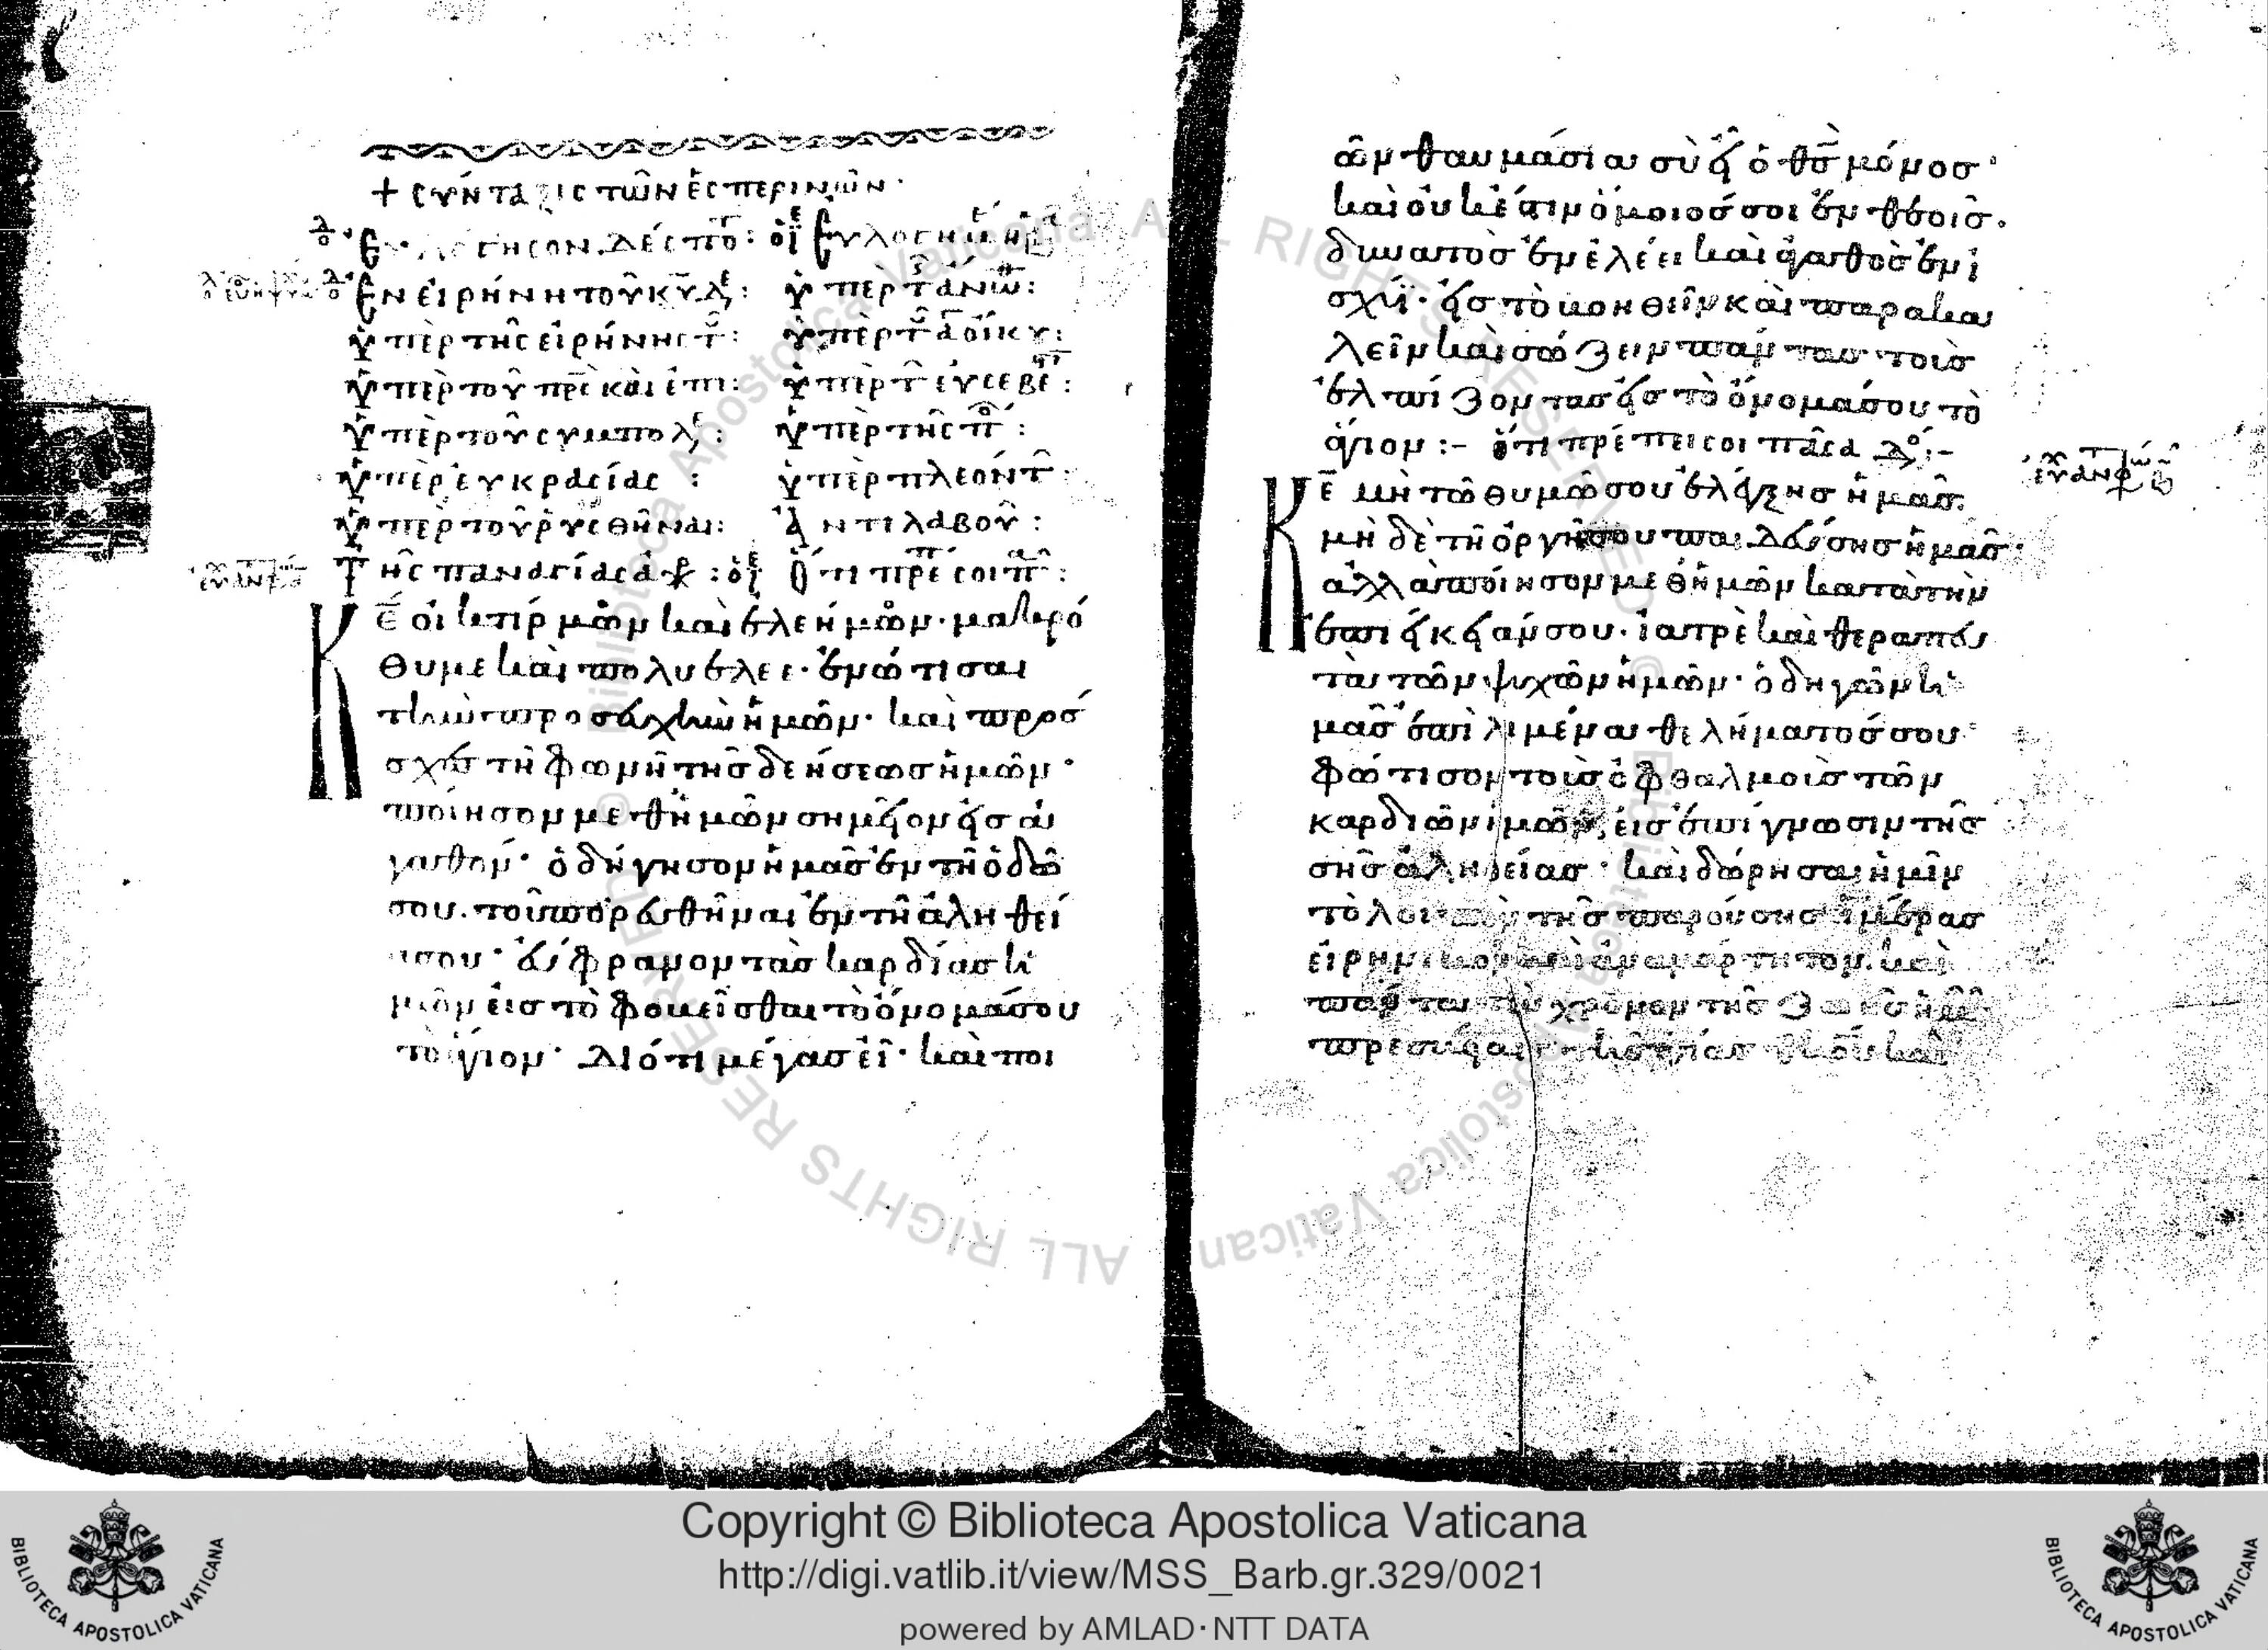 + σύνταξις τῶν ἑσπερινῶν·
Εὐλόγησον δέσπο: οἱ Εὐλογη
Ἐν εἰρήνη τοῦ κυ: ὑπὲρ τ ἄνω:
ὑπὲρ τῆς εἰρήνης τ: ὑπὲρ τ οἴκου:
ὑπὲρ τοῦ πρς καὶ ἐπι: ὑπὲρ τ εὐσεβε:
ὑπὲρ τοῦ συμπολ: ὑπὲρ τῆς π:
ὑπὲρ εὐκρασίας : ὑπὲρ πλεόντ:
ὑπὲρ τοῦ ῥυσθῆναι: Ἀντιλαβοῦ:
Τῆς παναγίας ἀχρ: Ὅτι πρέ σοι π:
Κε οἰκτίρμων καὶ ἐλεήμων· μακρό
θυμε καὶ πολυέλεε· ἐνώτισαι
τὴν προσευχὴν ἡμῶν· καὶ πρόσ
σχες τῆ φωνῆ τῆς δεήσεως ἡμῶν·
ποίησον μεθ ἡμῶν σημεῖον εἰς ἀ
γαθόν· ὁδήγησον ἡμᾶς ἐν τῆ ὁδῶ
σου. τοῦ πορευθῆναι ἐν τῆ ἀληθεί
α σου· εὔφρανον τὰς καρδίας ἡ
μῶν εἰς τὸ φοβεῖσθαι τὸ ὄνομά σου
τὸ ἅγιον· Διότι μέγας εἶ· καὶ ποι
ῶν θαυμάσια σὺ εἶ ὁ θς μόνος·
καὶ οὐκ ἔστιν ὅμοιός σοι ἐν θεοῖς.
δυνατὸς ἐν ἐλέει καὶ ἀγαθὸς ἐν ἰ
σχύϊ· εἰς τὸ βοηθεῖν καὶ παρακα
λεῖν καὶ σώζειν πάντας τοὺς
ἐλπίζοντας εἰς τὸ ὄνομά σου τὸ
ἅγιον :- ὅτι πρέπει σοι πᾶσα δο:-
Κε μὴ τῶ θυμῶ σου ἐλέγξης ἡμᾶς.
μὴ δὲ τῆ ὀργῆ σου παιδεύσης ἡμᾶς·
ἀλλὰ ποίησον μεθ ἡμῶν κατὰ τὴν
ἐπιείκειάν σου· ἰατρὲ καὶ θεραπευ
τὰ τῶν ψυχῶν ἡμῶν· ὁδηγῶν ἡ
μᾶς ἐπὶ λιμένα θελήματός σου·
φώτισον τοὺς ὀφθαλμοὺς τῶν
καρδιῶν ἡμῶν, εἰς ἐπίγνωσιν τῆς
σῆς ἀληθείας· καὶ δώρησαι ἡμῖν
τὸ λοιπὸν τῆς παρούσης ἡμέρας
εἰρηνικὸν καὶ ἀναμάρτητον. καὶ
πάντα τὸν χρόνον τῆς ζωῆς ἡμ
πρεσβείαις τῆς ἁγίας θκου καὶ
Copyright © Biblioteca Apostolica Vaticana
http://digi.vatlib.it/view/MSS_Barb.gr.329/0021
powered by AMLAD·NTT DATA
BIBLIOTECA APOSTOLICA VATICANA
BIBLIOTECA APOSTOLICA VATICANA